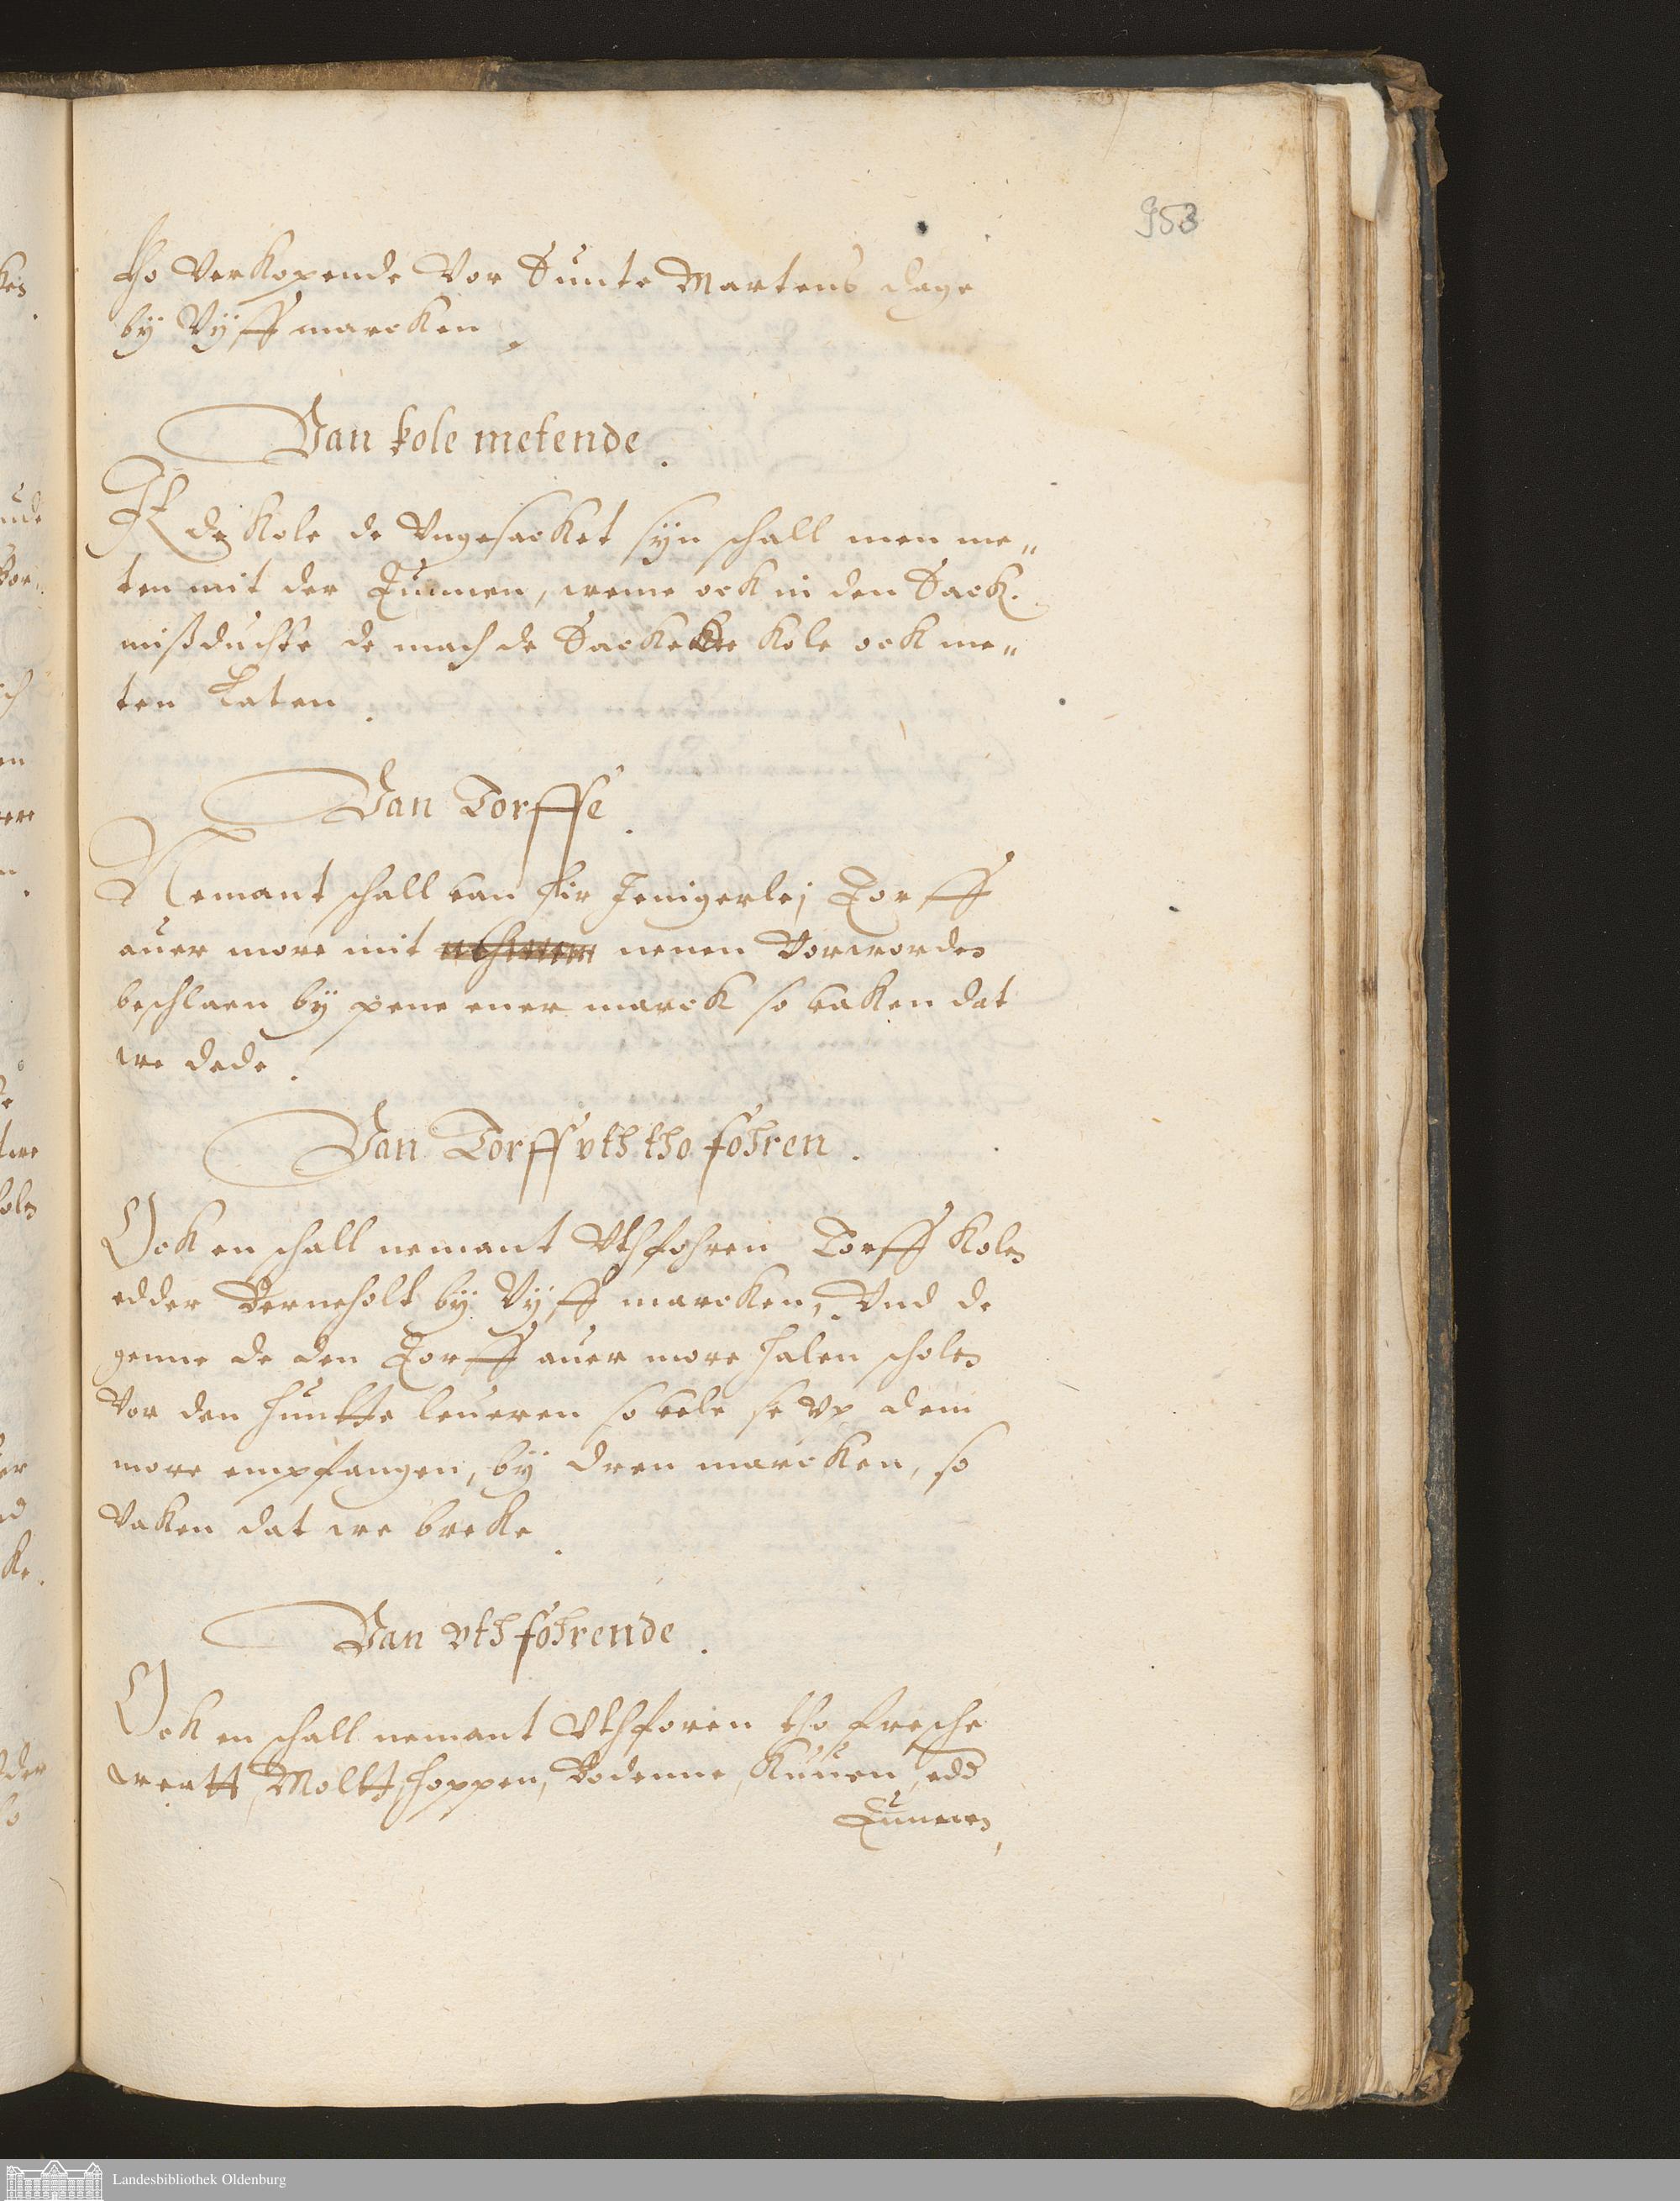 353
tho Verkopende Vor Sunte Martens dage
bÿ Vÿff marcken
Van kole metende.
It de Kole de Vngesacket sÿn schall men me„
ten mit der Tunnen, weme ock in den Sack.
mißduchte de mach de Sackede Kole ock me„
ten laten.
Van Torffe.
Nemant schall van hir Jenigerlej Torff
auer more mit nenen Vorwordes
beschlaen bÿ pene ener marck so vaken dat
we dede.
Van Torff vth tho fohren.
Ock en schall nemant Vthfohren Torff Kolen
edder Berneholt bÿ Vÿff marcken, Vnd de
genne de den Torff auer more halen scholen
Vor den huntte leueren so vele se vp dem
more empfangen, bÿ dren marcken, so
Vaken dat we breke.
Van vthfohrende.
Ock en schall nemant Vthforen tho fresche
wertt, Moltt, hoppen, Bodenne, Kuuen, edd
Tunnen,
Landesbibliothek Oldenburg